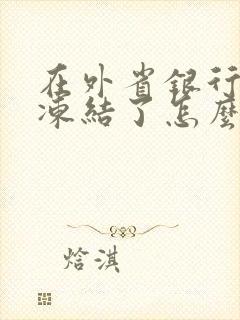 在外省銀行
凍結了怎麼
焓淇